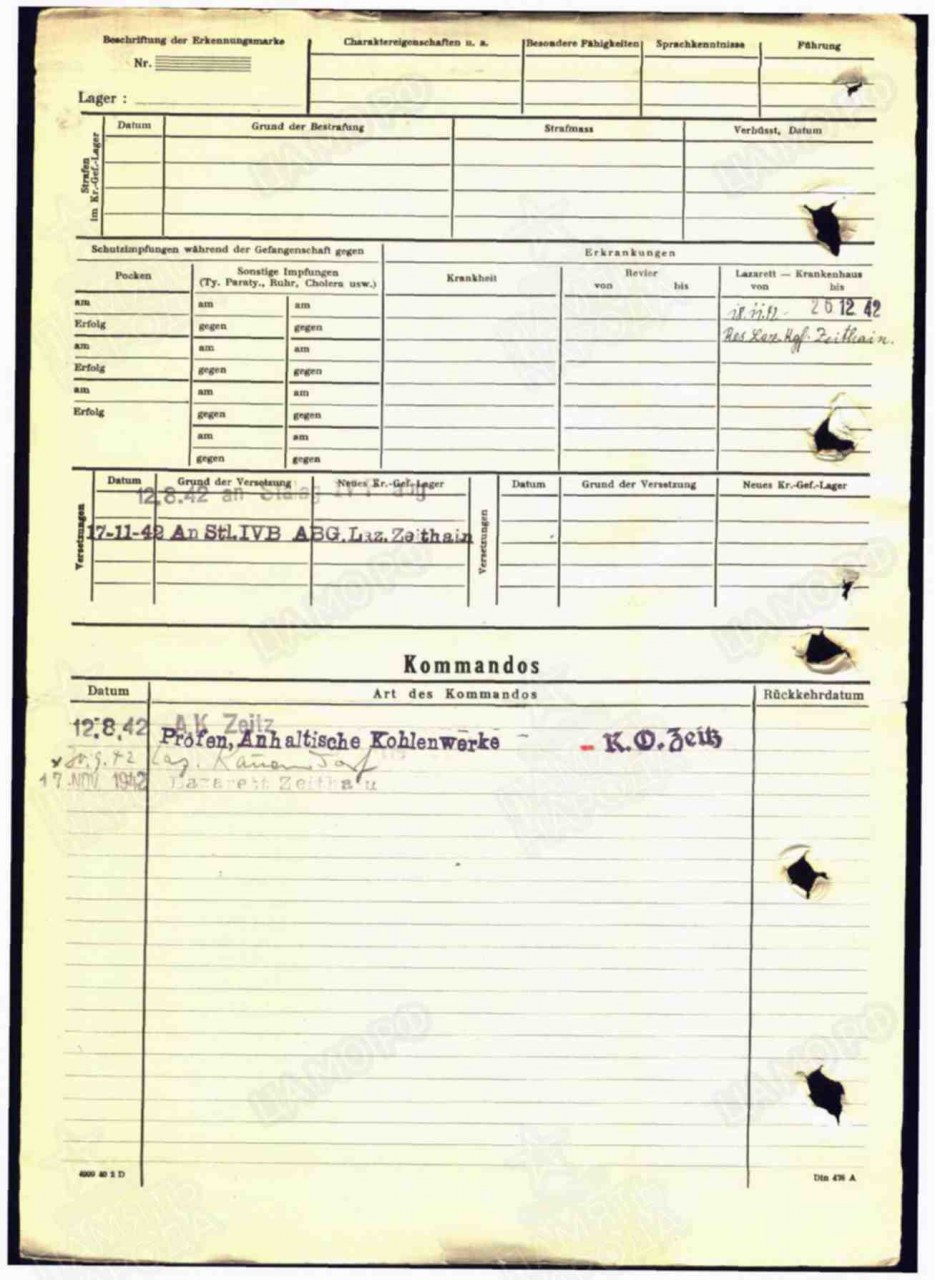 Beschriftung der Erkennungsmarke
Nr.
Lager :
Charaktereigenschaften u. a.
Besondere Fähigkeiten
Sprachkenntnisse
Führung
Strafen
im Kr.-Gef.-Lager
Datum
Grund der Bestrafung
Strafmass
Verbüsst, Datum
Schutzimpfungen während der Gefangenschaft gegen
Erkrankungen
Pocken
Sonstige Impfungen
(Ty. Paraty., Ruhr, Cholera usw.)
Krankheit
Revier
von bis
Lazarett — Krankenhaus
von bis
am am am
18.11.42 - 26 12 42
Erfolg gegen gegen
Res. Laz. Kgf. Zeithain.
am am am
Erfolg gegen gegen
am am am
Erfolg gegen gegen
am am
gegen gegen
Versetzungen
Datum Grund der Versetzung Neues Kr.-Gef.-Lager
12.8.42 an Stalag IV
17-11-42 An Stl.IVB ABG. Laz. Zeithain
Versetzungen
Datum Grund der Versetzung Neues Kr.-Gef.-Lager
Kommandos
Datum Art des Kommandos Rückkehrdatum
A.K. Zeitz
12.8.42 Profen, Anhaltische Kohlenwerke - K.O. Zeitz
Laz.
17. NOV. 1942 Lazarett Zeithain
4999 40 2 D
Din 476 A
ЦАМО РФ
ПАМЯТЬ
НАРОДА